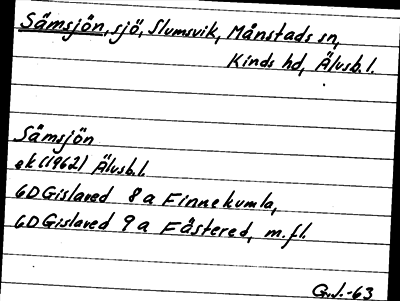 Sämsjön, sjö, Slumsvik, Månstads sn,
Kinds hd, Älvsb. l.
Sämsjön
ek (1962) Älvsb. l.
6D Gislaved 8a Finnekumla,
6D Gislaved 9a Fästered, m. fl.
G.J.-63